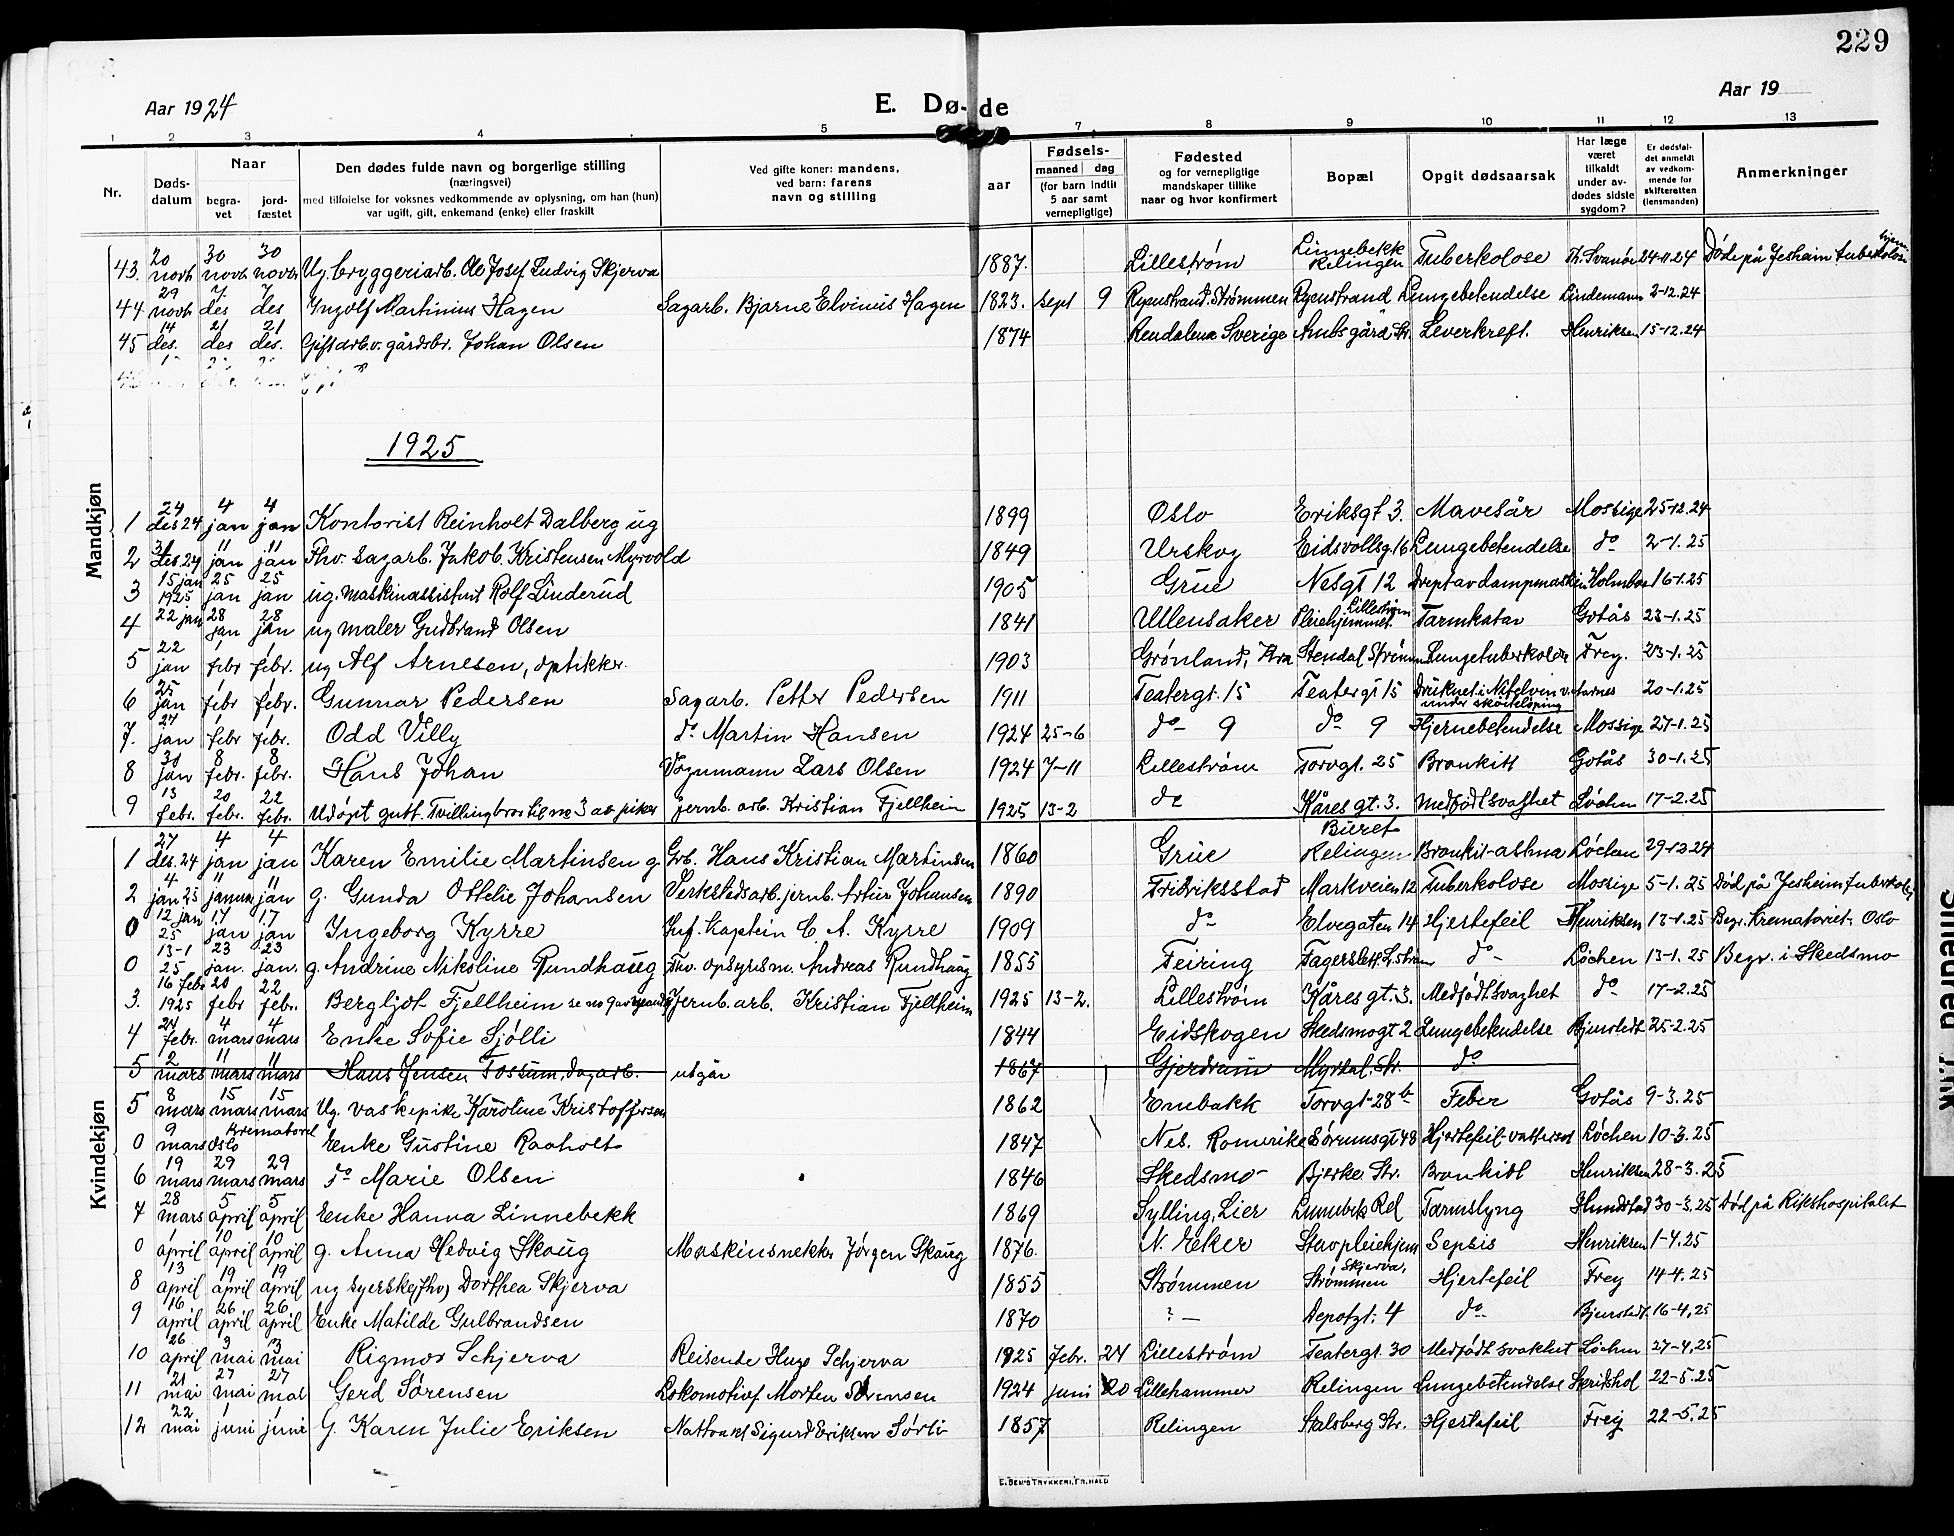 229
Aar 1924
E. Dø- de
Aar 19
1 2 3 4 5 7 8 9 10 11 12 13
Nr. Døds- datum Naar begra- vet jord- fæstet
Den dødes fulde navn og borgerlige stilling
(næringsvei)
med tilføielse for voksnes vedkommende av oplysning, om han (hun)
var ugift, gift, enkemand (enke) eller fraskilt
Ved gifte koner: mandens,
ved barn: farens
navn og stilling
aar
Fødsels-
maaned dag
(for barn indtil
5 aar samt
vernepligtige)
Fødested
og for vernepligtige
mandskaper tillike
naar og hvor konfirmert
Bopæl
Opgit dødsaarsak
Har læge
været
tilkaldt
under av-
dødes sidste
sygdom?
Er dødsfal-
det anmeldt
av vedkom-
mende for
skifteretten
(lensmanden)
Anmerkninger
43. 20 novb 30 novb 30 novbr Ug. bryggeriarb. Ole Josef Ludvig Skjerva 1887. Lillestrøm Linnebekk Relingen Tuberkolose Th. Svanøe 24-11.24 Døde på Jesheim tuberkolose hjem
44 29 novb 7 des 7 des Yngolf Martinius Hagen Sagarb. Bjarne Elvinius Hagen 1823. sept 9 Rysnstrand. Strømmen Rysnstrand Lungebetendelse Lindemann 2-12.24
45 14 des. 21 des 21 des. Gift arb. v. gårdsbr. Johan Olsen 1874 Rendalena Sverige Ambsgård Str. Leverkreft. Henriksen 15-12.24
1925
Mandkjøn
1 24 des 24 4 jan 4 jan Kontorist Reinholt Dalberg ug 1899 Oslo Eriksgt 3. Mavesår Mossige 25-12.24
2 31 des 24 11 jan 11 jan Fhv. sagarb. Jakob Kristensen Myrvold 1849 Urskog Eidsvollsg. 16 Lungebetendelse do 2-1.25
3 15 jan 1925 25 jan 25 jan ug. maskinassistent Rolf Linderud 1905 Grue Nesgt 12 Drept av dampmaskin Holmboe 16-1.25
4 22 jan 28 jan 28 jan ug maler Gudbrand Olsen 1841 Ullensaker Pleiehjemmet. Lillestrøm Tarmkatar Gotås 23-1.25
5 22 jan 1 febr 1 febr. ug Alf Arnesen, optikker. 1903 Grønland, Kra Stendal Strømm Lungetuberkolose Frey. 23-1.25
6 25 jan 1 febr 1 febr. Gunnar Pedersen Sagarb. Petter Pedersen 1911 Teatergt. 15 Teatergt 15 Druknet i Nitelven v. Aarnes under skøiteløping 20-1.25
7. 24 jan 1 febr 1 febr. Odd Villy do Martin Hansen 1924 25-6 do- 9 do 9 Hjernebetendelse Mossige 27-1.25
8 30 jan 8 febr. 8 febr. Hans Johan Vognmann Lars Olsen 1924 7-11 Lillestrøm Torvgt. 25 Bronkitt Gotås 30-1.25
9 13 febr. 20 febr. 22 febr. Udøpt gutt. Tvillingbror til nr 3 av piker Jernb. arb. Kristian Fjellheim 1925 13-2 do Kåres gt. 3. Medfødt svaghet Løchen 17-2.25
Kvindekjøn
1 27 des. 24 4 jan 4 jan Karen Emilie Martinsen g Grb. Hans Kristian Martinsen 1860 Grue Buret Relingen Bronkit-asthma Løchen 29-12.24
2 4 jan 25 11 januar 11 jan g. Gunda Ottelie Johansen Verkstedsarb. jernb. Artur Johansen 1890 Fridriksstad Markveien 12 Tuberkolose Mossige 5-1.25 Død på Jesheim Tuberkolhj
0 12 jan 25 17 jan 17 jan Ingeborg Kyrre Inf. Kaptein C. A. Kyrre 1909 do- Elvegaten 14 Hjertefeil Henriksen 13-1.25 Begr. Krematoriet. Oslo
0 13-1 25 23 jan. 23 jan. g. Andrine Nikoline Rundhaug Fhv. opsynsm. Andreas Rundhaug 1855 Feiring Fagerslett. L.strøm do- Løchen 13-1.25 Begr. i Skedsmo
3. 16 febr 1925 20 febr 22 febr. Bergljot Fjellheim se no 9 av mandkj Jernb. arb. Kristian Fjellheim 1925 13-2. Lillestrøm Kåres gt. 3. Medfødt svaghet do 17-2.25
4 24 febr. 4 mars 4 mars Enke Sofie Sjølli 1844 Eidskogen Skedsmogt 2 Lungebetendelse Bjunstedt 25-2.25
5 2 mars 11 mars 11 mars Hans Jensen Fossum, dagarb. utgår 1867 Gjerdrum Myrdal. Str. do
5 8 mars 15 mars 15 mars Ug. vaskepike Karoline Kristoffersen 1862 Enebakk Torvgt-28 b Feber Gotås 9-3.25
0 9 mars Krematoriet Oslo Enke Gustine Raaholt 1847 Nes. Romerike Sørumsgt 48 Hjertefeil-vattersot Løchen 10-3.25
6 19 mars 29 mars 29 mars do Marie Olsen 1846 Skedsmo Bjerke Str. Bronkitt Henriksen 28-3.25
7 28 mars 5 april 5 april Enke Hanna Linnebekk 1869 Sylling, Lier Linnebek Rel Tarmslyng Hundstad 30-3.25 Død på Rikshospitalet
0 1 april 10 april 10 april g. Anna Hedvig Skaug Maskinsnekker Jørgen Skaug 1876. N. Eker Starpleiehjem Sepsis Henriksen 1-4.25
8 13 april 19 april 19 april ug syerske (fhv) Dorthea Skjerva 1855 Strømmen Skjerva, Strømmen Hjertefeil Frey 14-4.25
9 16 april 26 april 26 april Enke Matilde Gulbrandsen 1870 ?- Depotgt. 4 do- Bjunstedt 16-4.25
10 26 april 3 mai 13 mai Rigmor Schjerva Reisende Hugo Schjerva 1925 febr. 24 Lillestrøm Teatergt. 30 Medfødt svakhet Løchen 27-4.25
11 21 mai 27 mai 27 mai Gerd Sørensen Lokomotivf Morten Sørensen 1924 juni 20 Lillehammer Relingen Lungebetendelse Skridshol 22-5.25
12 22 mai 1 juni 1 juni G. Karen Julie Eriksen Nattvakt Sigurd Eriksen Sørli 1857 Relingen Stalsberg Str. Hjertefeil Frey 22-5.25
E. BENS TRYKKERI, FR. HALD